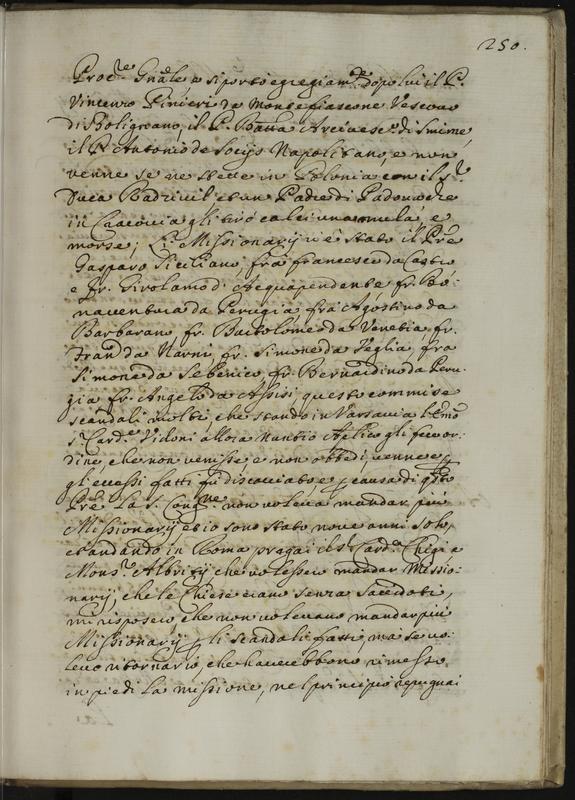 250.
Proc.re Gnãle e si portò egregiam.te dopo lui il P.
Vincenzo Pinieri da Montefiascone Vescovo
di Boligrano, il P. Arcivesc.o di Smirne,
il P. Antonio de Socijs Napolitano, e non
venne se ne stette in Polonia con il S.r
Duca Radzivil et un Padre di Padova che
in Cracovia gli tirò calci una mula, e
morse; Li Missionarij vi è stato il Pre
Gasparo Siciliano frà Francesco da Castro
e fr. Girolamo d'Acquapendente fr. Bo:
naventura da Perugia frà Agostino da
Barbarano fr. Bartolomeo da Venetia fr.
Fran.co da Narni, fr. Simone da Veglia, fra
Simone da Sebenico, fr. Bernardino da Peru:
gia fr. Angelo da Assisi, questo commise
scandali molti, che stando in Varsavia l'Emo
S.r Card.e Vidoni allora Nuntio Aplico gli fece or:
dine, che non venisse e non obbedì, venne e p
gli eccessi fatti fù discacciato, e p causa di q.sto
Pre la S. Cong.ne non voleva mandar più
Missionarij et io sono stato nove anni solo,
et andando in Roma pregai il S.r Card. Chigi e
Mons.r Albritij che volesseo mandar Missio:
narij, che le Chiese erano senza Sacerdoti,
mi risposero che non volevano mandar più
Missionarij p li scandali fatti, ma se vo:
levo ritornarvi, che haverebbono rimesso
in piedi la missione, nel principio repugnai